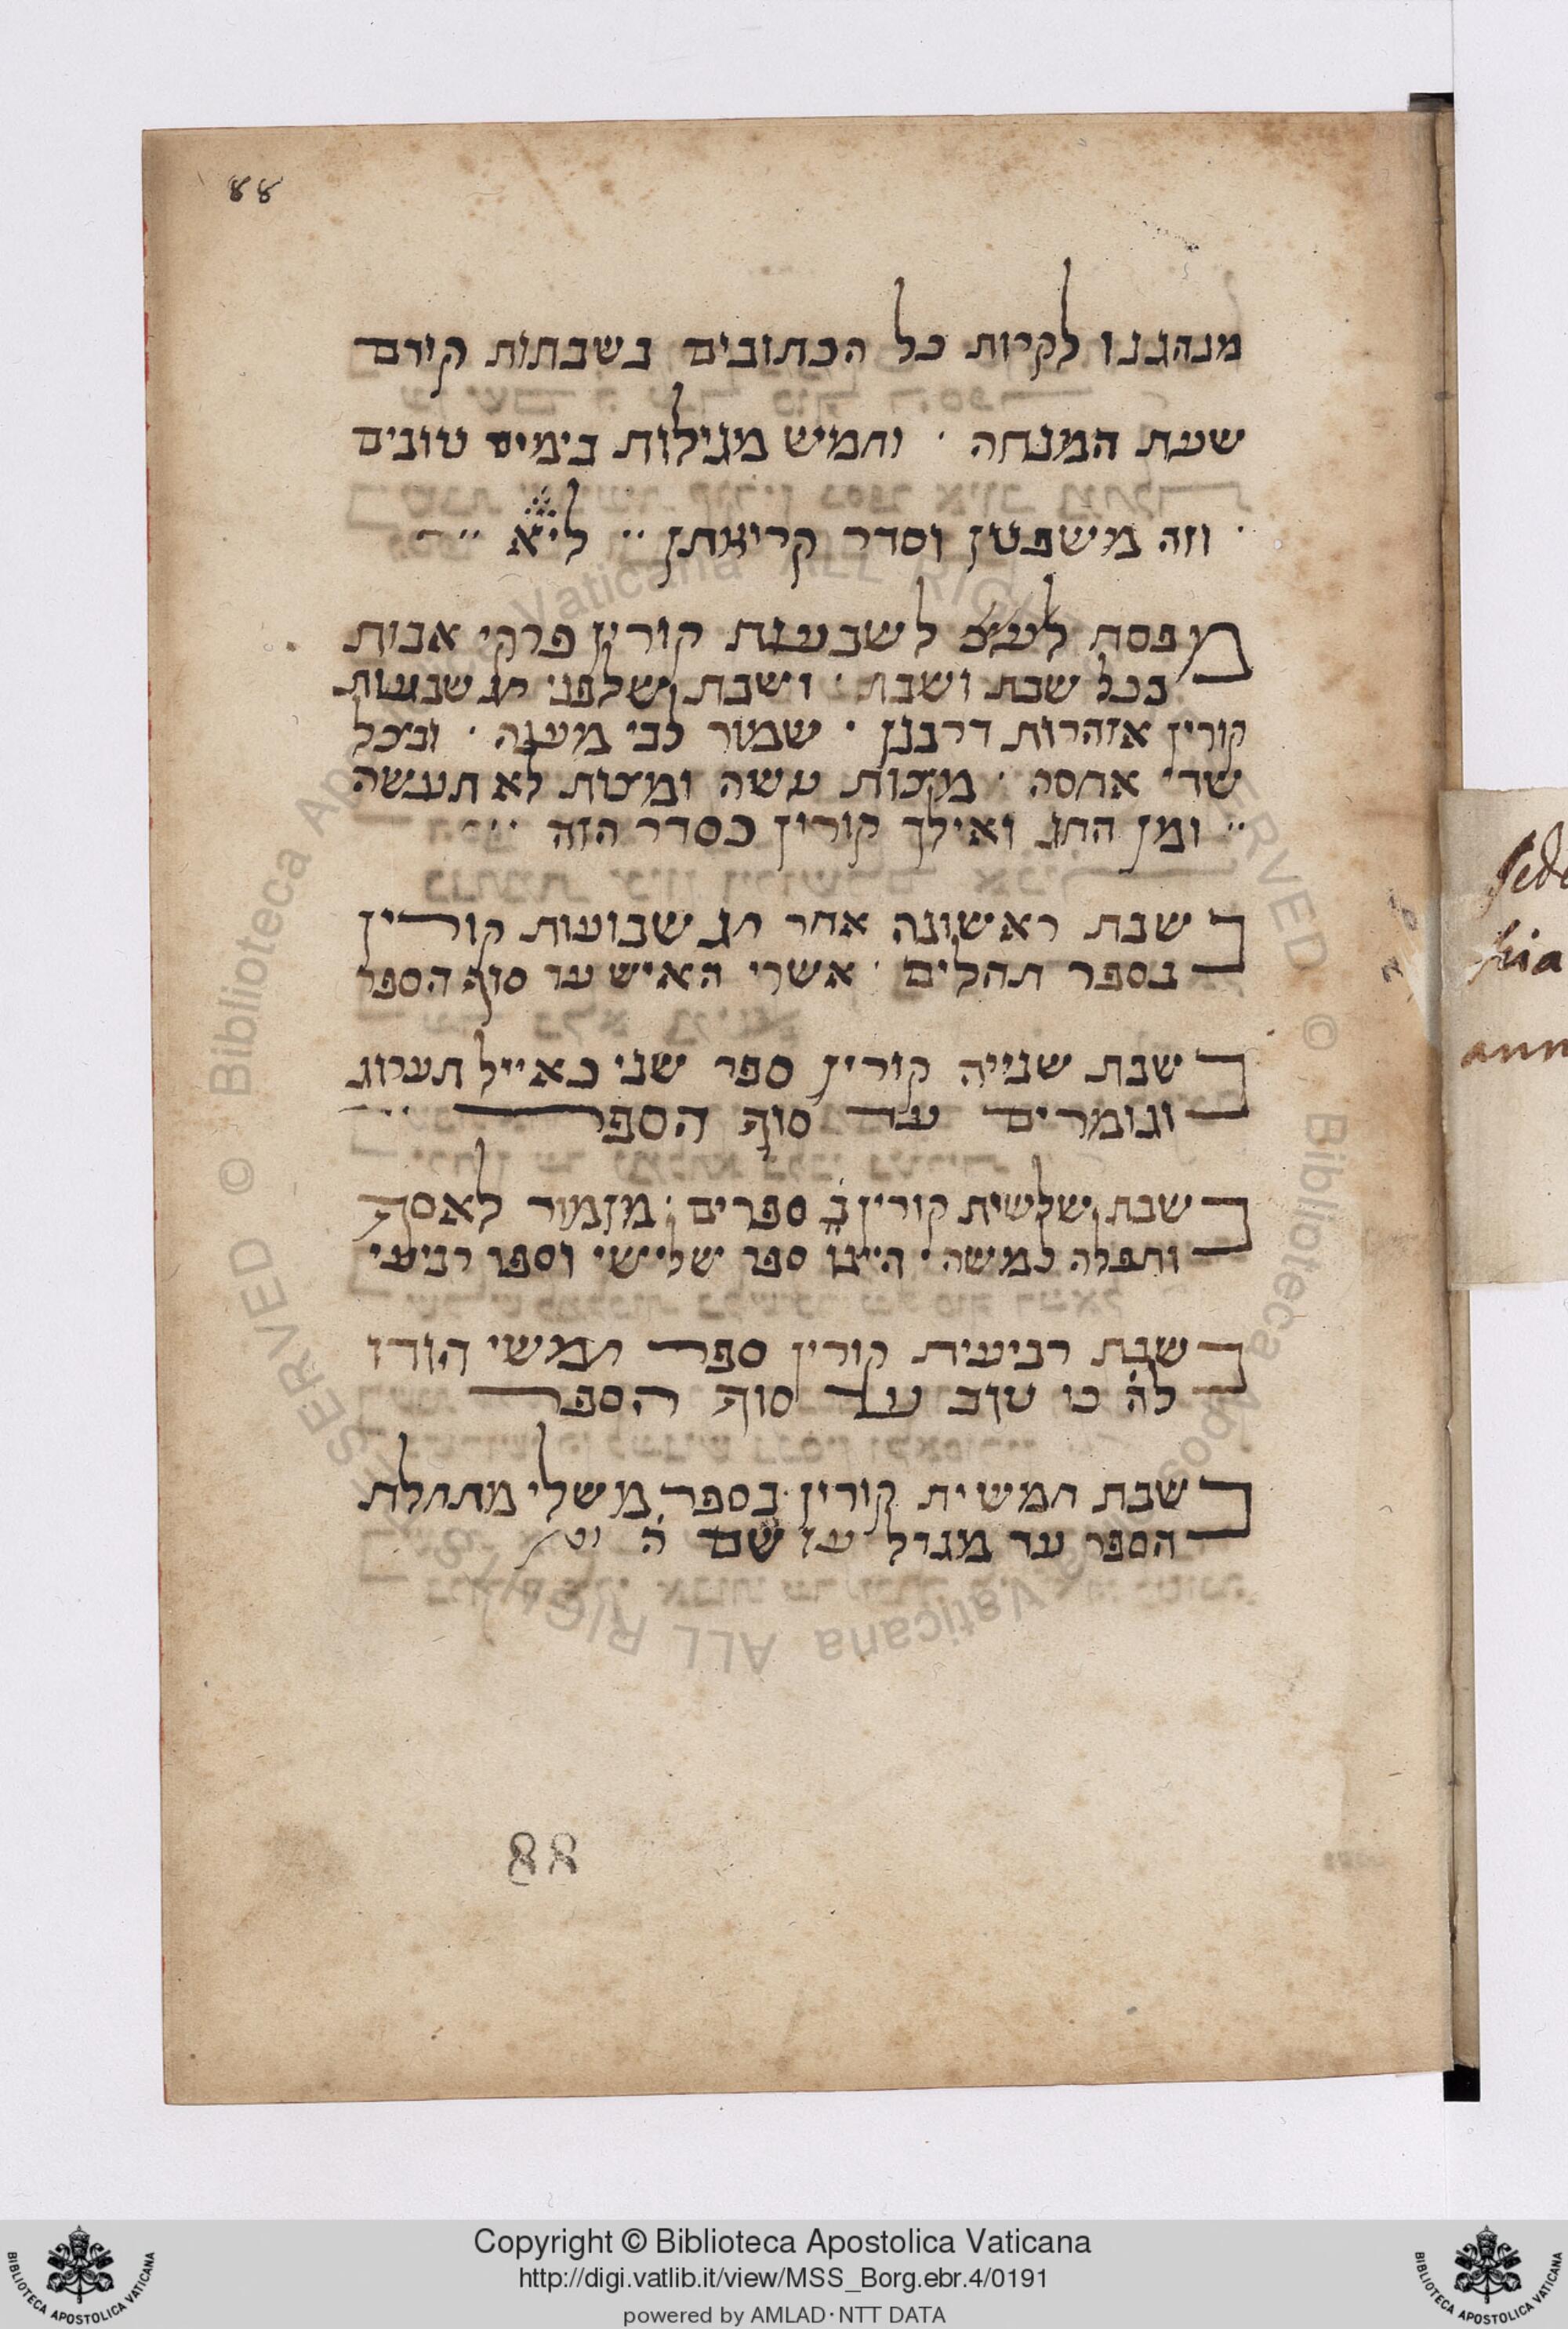 88
מנהגנו לקרות כל הכתובים בשבתות קודם
שעת המנחה · וחמיש מגילות בימים טובים
· וזה משפטן וסדר קריאתן ··
מפסח לשבועות קורין פרקי אבות
בכל שבת ושבת · ושבת שלפני חג שבועות
קורין אזהרות דרבנן · שמור לבי מענה · ובצל
שדי אחסה · מצות עשה ומצות לא תעשה
·· ומן החג ואילך קורין כסדר הזה ··
שבת ראשונה אחר חג שבועות קורין
בספר תהלים · אשרי האיש עד סוף הספר
שבת שנייה קורין ספר שני כאייל תערוג
וגומרים עד סוף הספר
שבת שלשית קורין ב ספרים · מזמור לאסף
ותפלה למשה · היינו ספר שלישי וספר רביעי
שבת רביעית קורין ספר חמשי הודו
לה כי טוב עד סוף הספר
שבת חמשית קורין בספר משלי מתחלת
הספר עד מגדל עז שם ה
88
sede
hia
ann
Copyright © Biblioteca Apostolica Vaticana
http://digi.vatlib.it/view/MSS_Borg.ebr.4/0191
powered by AMLAD·NTT DATA